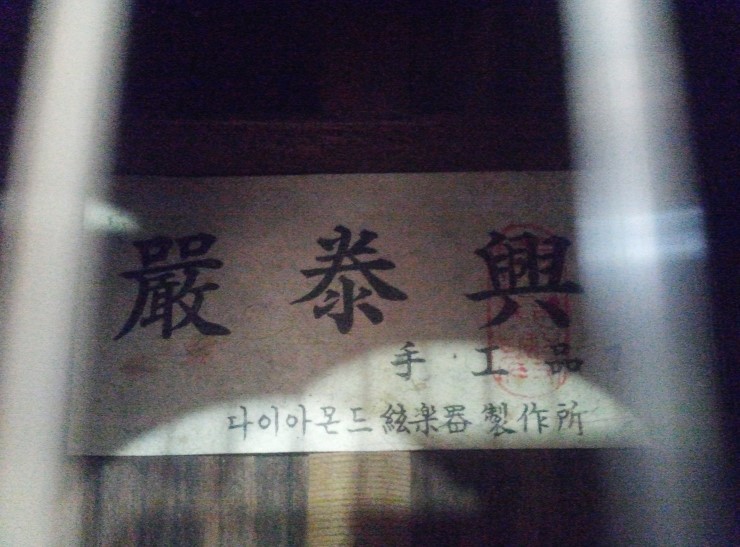 嚴泰興
手工品
다이아몬드 絃楽器 製作所